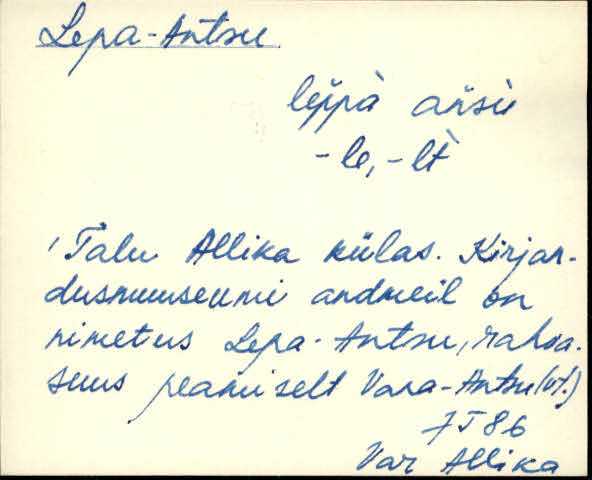 Lepa-Antsu
lep̆pà añsù
-le, -lt
Talu Allika külas. Kirjan-
dusmuuseumi andmeil on
nimetus Lepa-Antsu, rahva-
suus peamiselt Vana-Antsu (vt.)
Var Allika